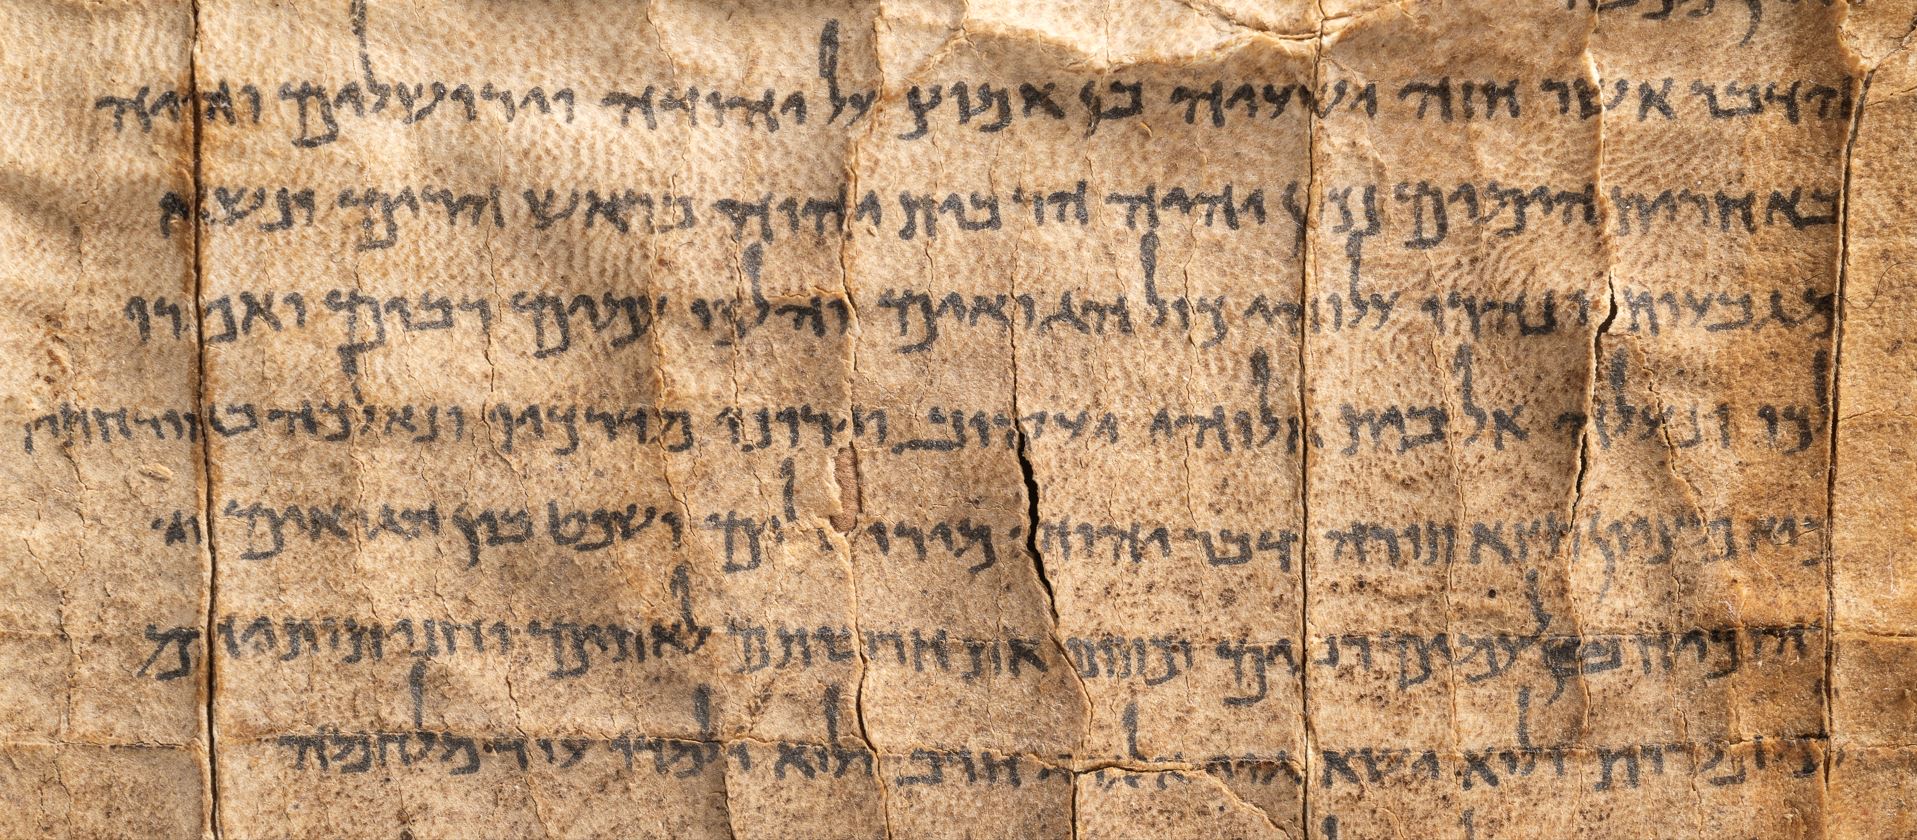 הדבר אשר חזה ישעיה בן אמוץ על יהודה וירושלים והיה
באחרית הימים נכון יהיה הר בית יהוה בראש הרים ונשא
מגבעות ונהרו עלוהי כול הגואים והלכו עמים רבים ואמרו
לכו ונעלה אל בית אלוהי יעקוב וירונו מדרכיו
כיא מציון תצא תורה דבר יהוה מירושלים ושפט בין הגואים
לעמים רבים וכתתו את חרבותם לאתים
ולוא ישא גוי אל גוי חרב ולוא ילמדו עוד מלחמה